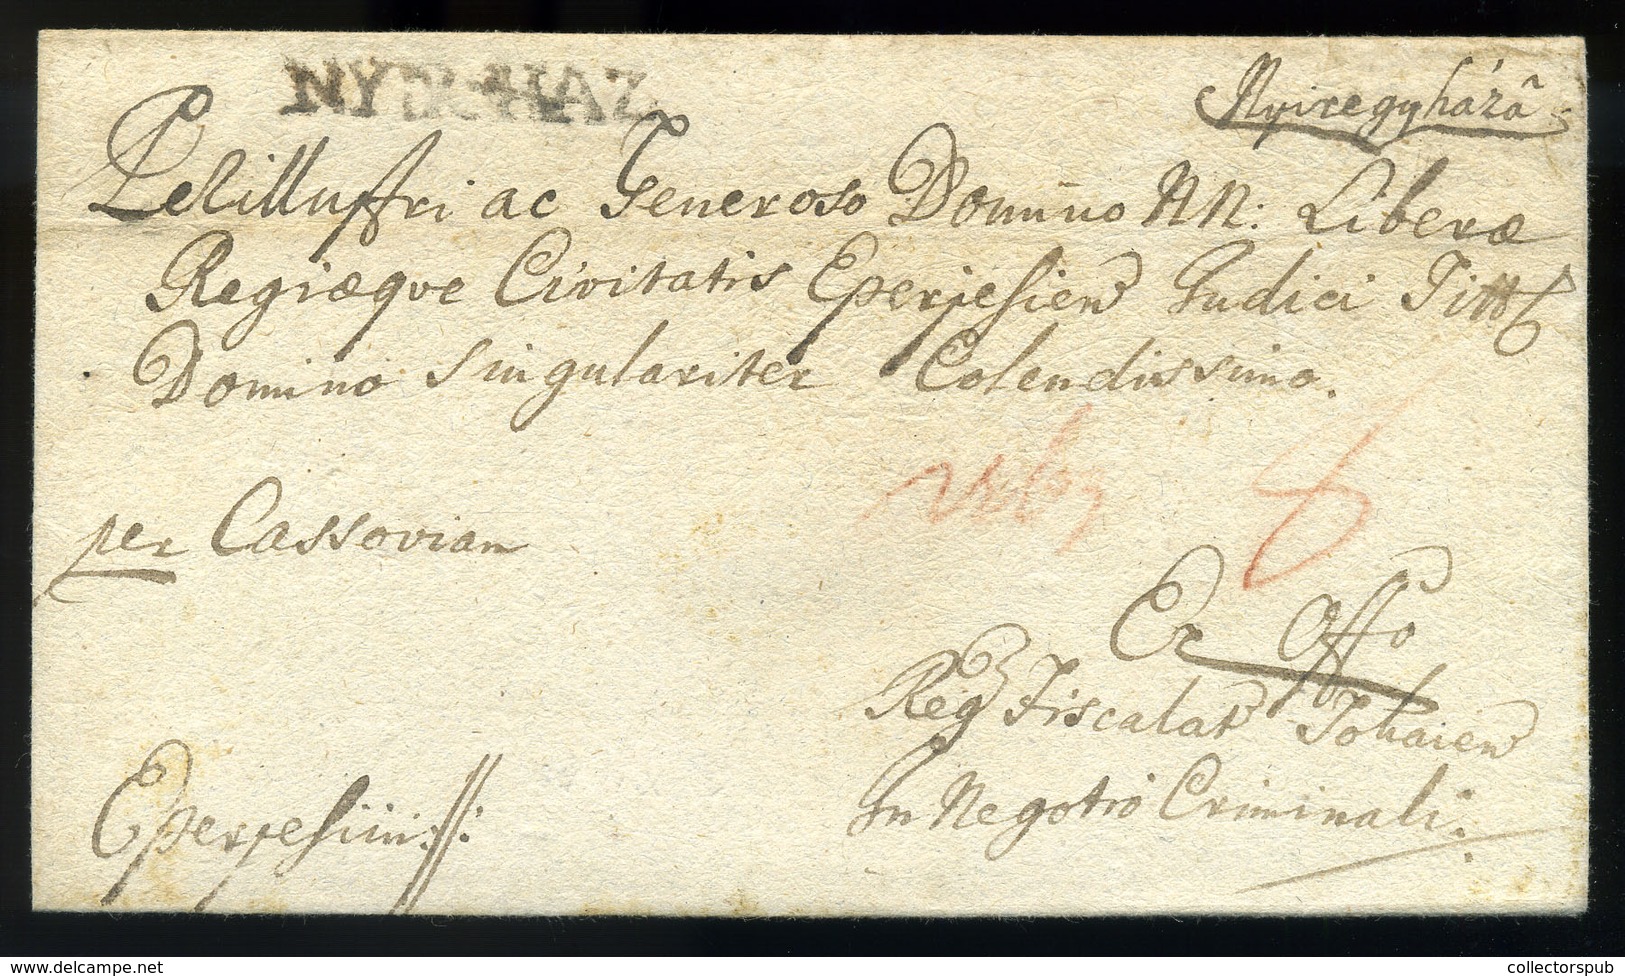 NYIR-HAZ
Nyiregyházâ
Perillustri ac Generoso Domino NN: Liberæ
Regiæque Civitatis Eperjesien Judici Titt
Domino Singulariter Colendissimo.
per Cassoviam
Ex Offo
Reg Fiscalat Tokaien
In Negotio Criminali.
Eperjesiini://:
collectorspub